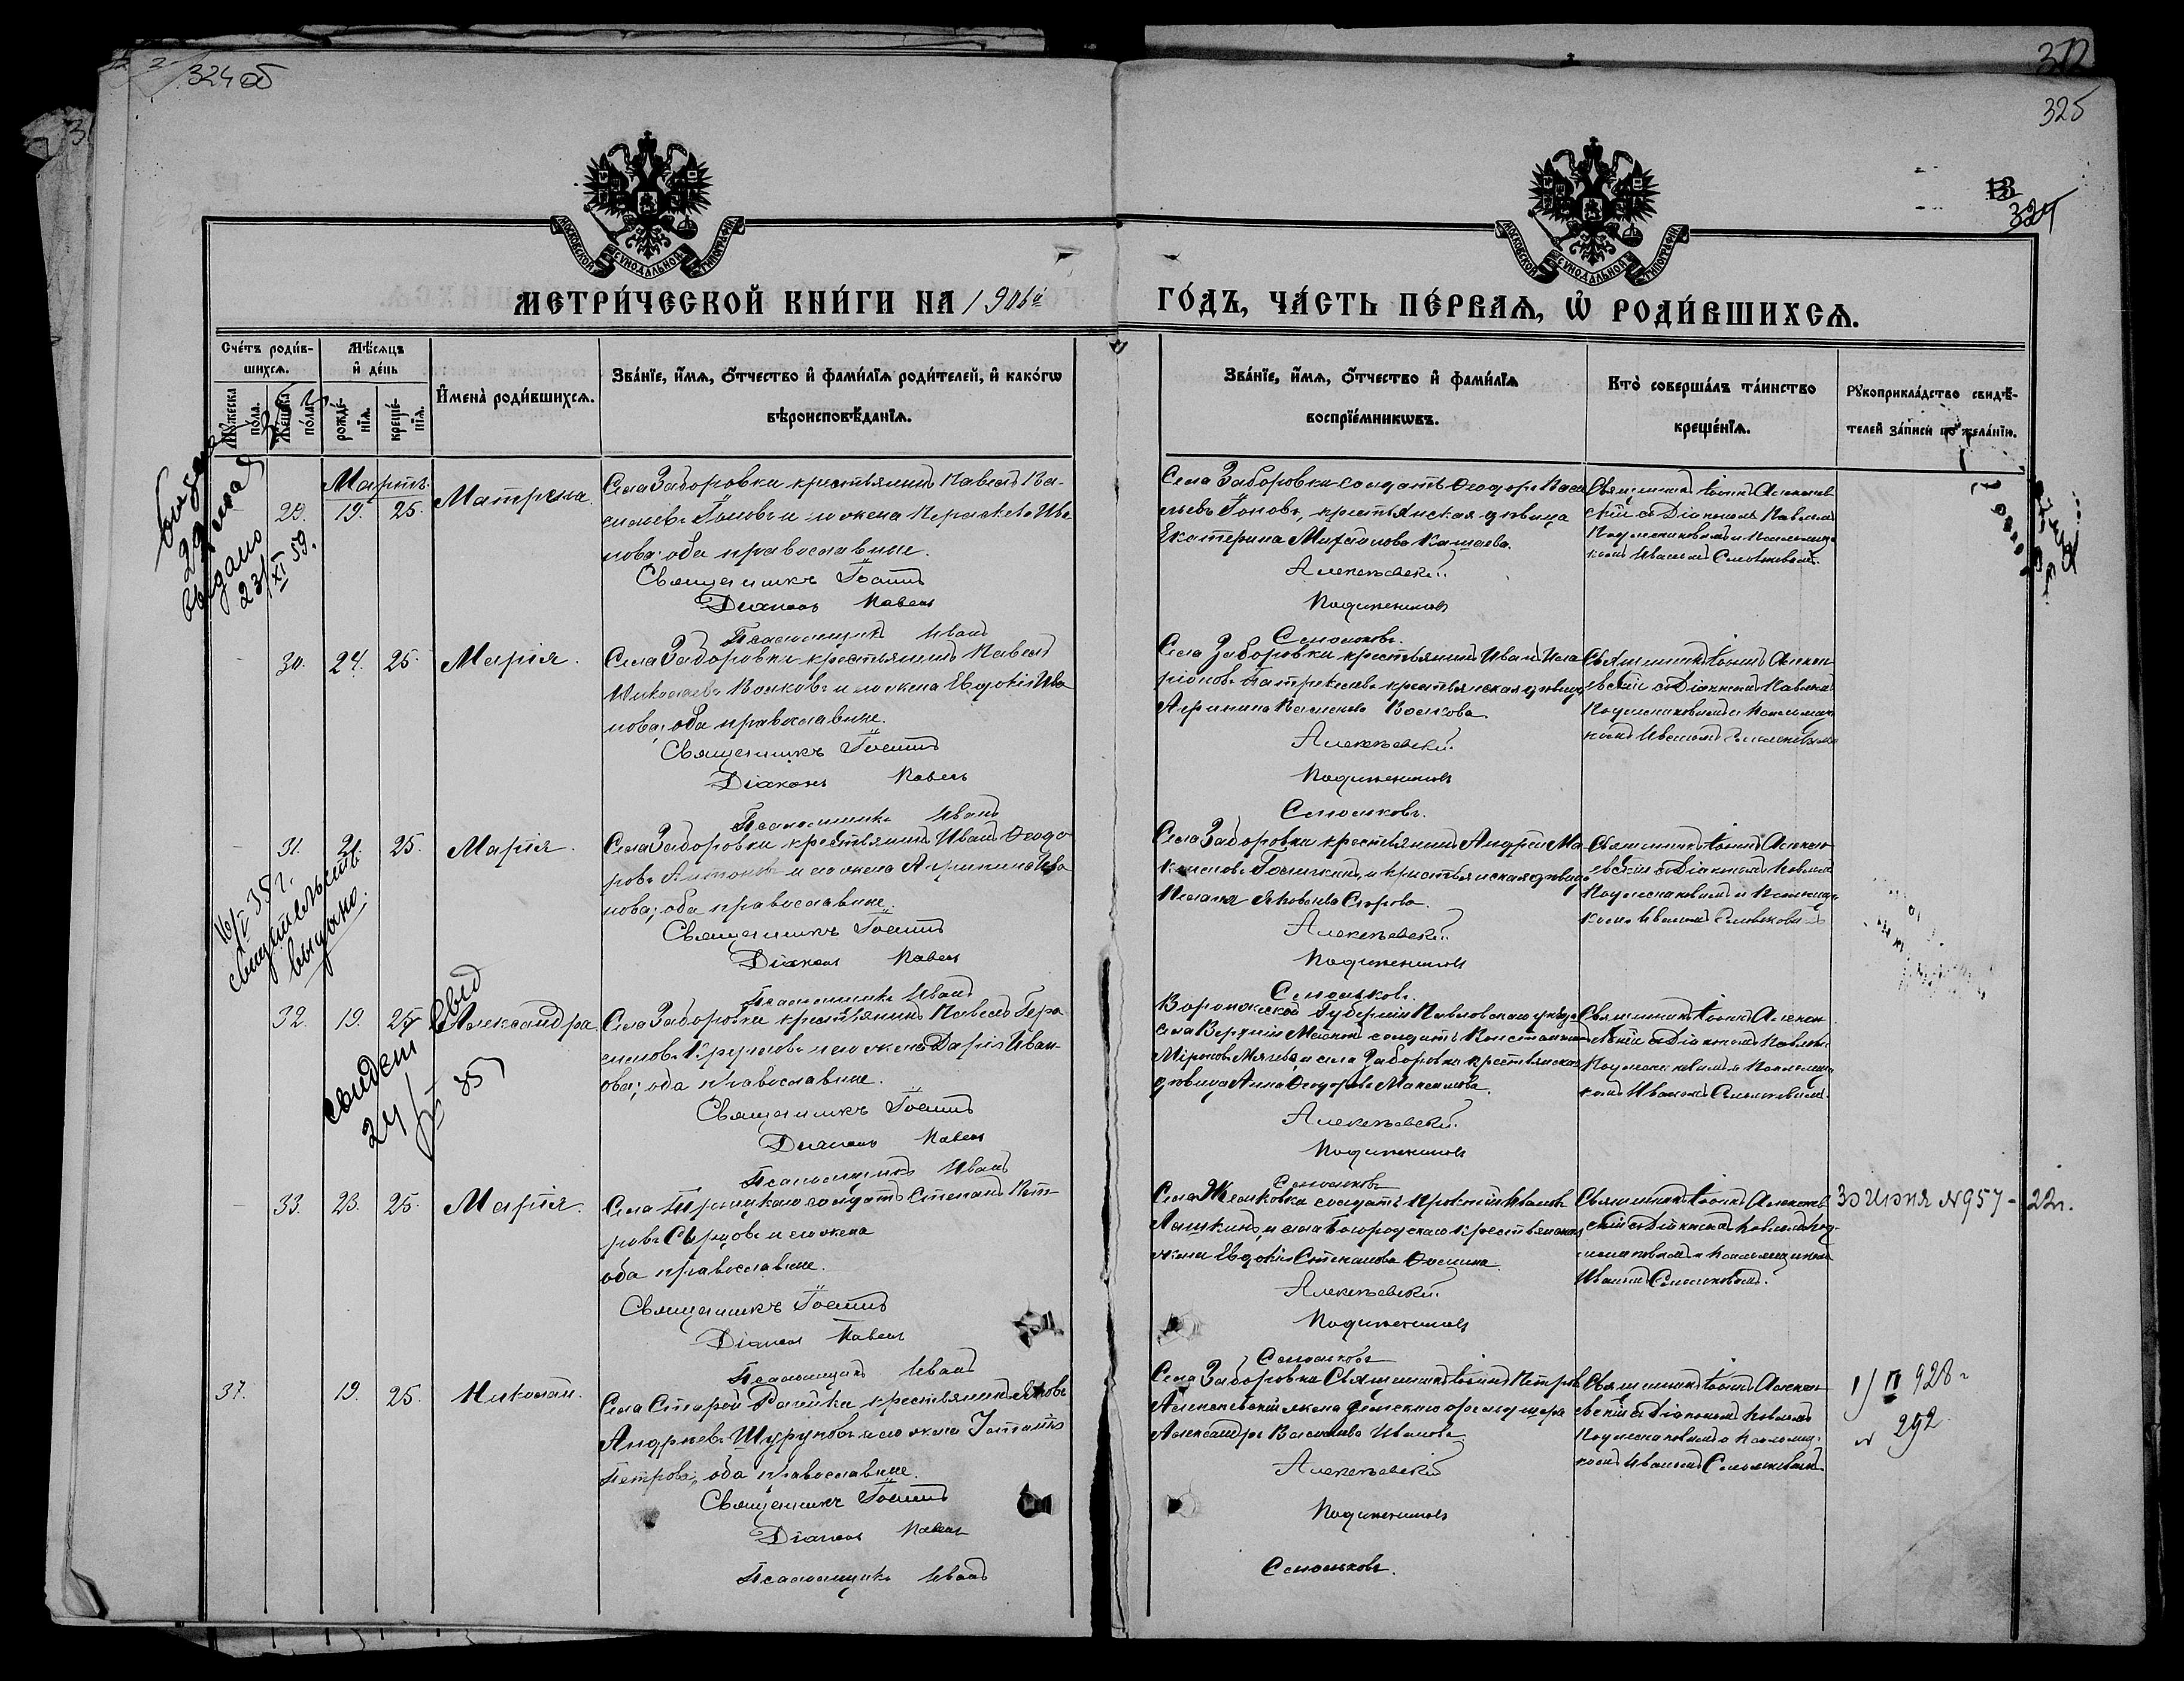 324 об
312
325
324
МОСКОВСКОЙ СѴНОДАЛЬНОЙ ТИПОГРАФІИ
МОСКОВСКОЙ СѴНОДАЛЬНОЙ ТИПОГРАФІИ
МЕТРИ́ЧЕСКОЙ КНИ́ГИ НА 1906й
ГО́ДЪ, ЧА́СТЬ ПЕ́РВАѦ, Ѡ҆ РОДИ́ВШИХСѦ.
Сче́тъ роди́в-
шихсѧ.
Мѣ́сѧцъ
и҆ де́нь
Мꙋ́жеска
по́ла.
Же́нска
по́ла.
рожде́-
нїѧ.
креще́-
нїѧ.
И҆мена̀ роди́вшихсѧ.
Зва́нїе, и҆́мѧ, ѻ҆́тчество и҆ фами́лїѧ роди́телей, и҆ како́гѡ
вѣроисповѣ́данїѧ.
Зва́нїе, и҆́мѧ, ѻ҆́тчество и҆ фами́лїѧ
воспрїе́мникѡвъ.
Кто̀ соверша́лъ та́инство
креще́нїѧ.
Рꙋкоприкла́дство свидѣ́-
телей за́писи по жела́нїю.
выдано
23/XI 59.
Мартъ
29. 19. 25. Матрена.
Села Заборовки крестьянинъ Павелъ Ва-
сильевъ Іоновъ и его жена Параскева Ива-
нова; оба православные.
Священникъ Іоаннъ
Діаконъ Павелъ
Псаломщикъ Иванъ
Села Заборовки солдатъ Ѳеодоръ Васи-
льевъ Іоновъ, крестьянская дѣвица
Екатерина Михайлова Кашаева.
Алексѣевскій.
Подлѣсниковъ
Смольковъ.
Священникъ Іоаннъ Алексѣев-
скій съ Діакономъ Павломъ
Подлѣсниковымъ и Псаломщи-
комъ Иваномъ Смольковымъ.
30. 24. 25. Марія.
Села Заборовки крестьянинъ Павелъ
Николаевъ Волковъ и его жена Евдокія Ива-
нова; оба православные.
Священникъ Іоаннъ
Діаконъ Павелъ
Псаломщикъ Иванъ
Села Заборовки крестьянинъ Иванъ Ила-
ріоновъ крестьянская дѣвица
Агрипина Васильева Волкова.
Алексѣевскій.
Подлѣсниковъ
Смольковъ.
Священникъ Іоаннъ Алексѣ-
евскій съ Діакономъ Павломъ
Подлѣсниковымъ и Псаломщи-
комъ Иваномъ Смольковымъ
31. 21. 25. Марія.
Села Заборовки крестьянинъ Иванъ Ѳеодо-
ровъ Антоновъ и его жена Агрипина Ива-
нова; оба православные.
Священникъ Іоаннъ
Діаконъ Павелъ
Псаломщикъ Иванъ
Села Заборовки крестьянинъ Андрей Ма-
ксимовъ и крестьянская дѣвица
Пелагія Яковлева Егорова.
Алексѣевскій.
Подлѣсниковъ
Смольковъ.
Священникъ Іоаннъ Алексѣ-
евскій съ Діакономъ Павломъ
Подлѣсниковымъ и Псаломщи-
комъ Иваномъ Смольковымъ
16/I 35 г.
свидетельство
выдано.
32. 19. 25. Александра.
Села Заборовки крестьянинъ Павелъ Гера-
симовъ и его жена Дарія Иван-
ова; оба православные.
Священникъ Іоаннъ
Діаконъ Павелъ
Псаломщикъ Иванъ
Воронежской Губерніи Павловскаго уѣзда
Села Верхній Мамонъ солдатъ Константинъ
Мироновъ и села Заборовки крестьянская
дѣвица Анна Ѳеодорова Максимова.
Алексѣевскій.
Подлѣсниковъ
Смольковъ
Священникъ Іоаннъ Алексѣ-
евскій съ Діакономъ Павломъ
Подлѣсниковымъ и Псаломщи-
комъ Иваномъ Смольковымъ.
свидет выд
24/ 35
33. 23. 25. Марія.
Села солдатъ Степанъ Пет-
ровъ Сырцовъ и его жена
оба православные.
Священникъ Іоаннъ
Діаконъ Павелъ
Псаломщикъ Иванъ
Села солдатъ Иванов
Лашкинъ, и села Богородскаго крестьянская
жена Евдокія Степанова Ѳомина.
Алексѣевскій.
Подлѣсниковъ
Смольковъ
Священникъ Іоаннъ Алексѣев-
скій съ Діакономъ Павломъ Под-
лѣсниковымъ и Псаломщикомъ
Иваномъ Смольковымъ.
30 Июня N957 - 22г.
37. 19. 25. Николай.
Села Старой Рачейки крестьянинъ Яковъ
Андреевъ Шурупов и его жена
Петрова; оба православные.
Священникъ Іоаннъ
Діаконъ Павелъ
Псаломщикъ Иванъ
Села Заборовки Священникъ Іоаннъ Петровъ
Алексѣевскій и жена земскаго фельдшера
Александра Васильева Иванова
Алексѣевскій
Подлѣсниковъ
Смольковъ.
Священникъ Іоаннъ Алексѣ-
евскій съ Діакономъ Павломъ
Подлѣсниковымъ и Псаломщи-
комъ Иваномъ Смольковымъ
1/II 928 г
N 292